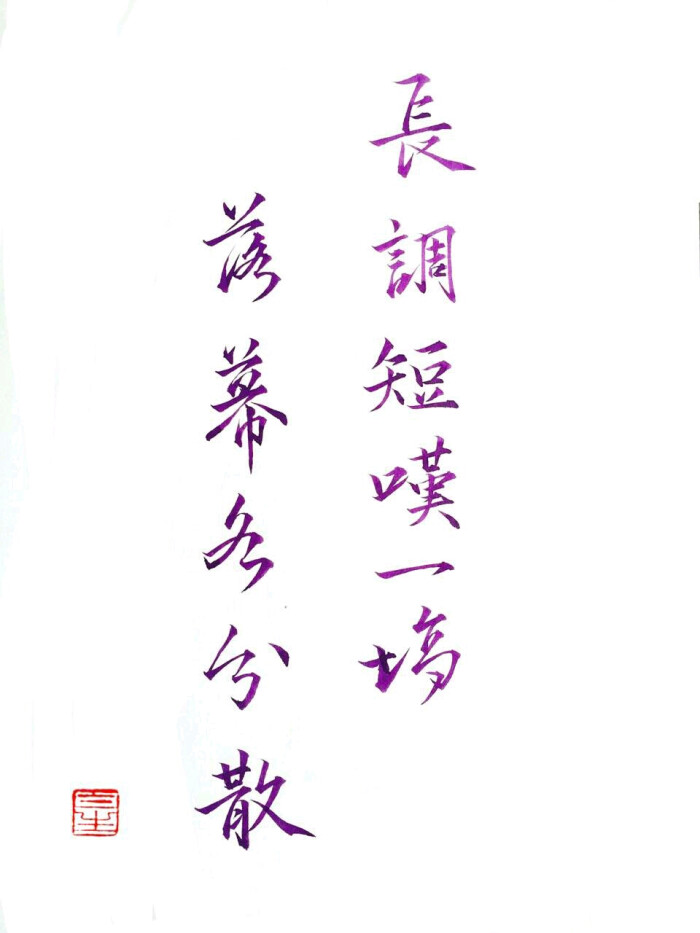 長調短嘆一場
落幕各分散